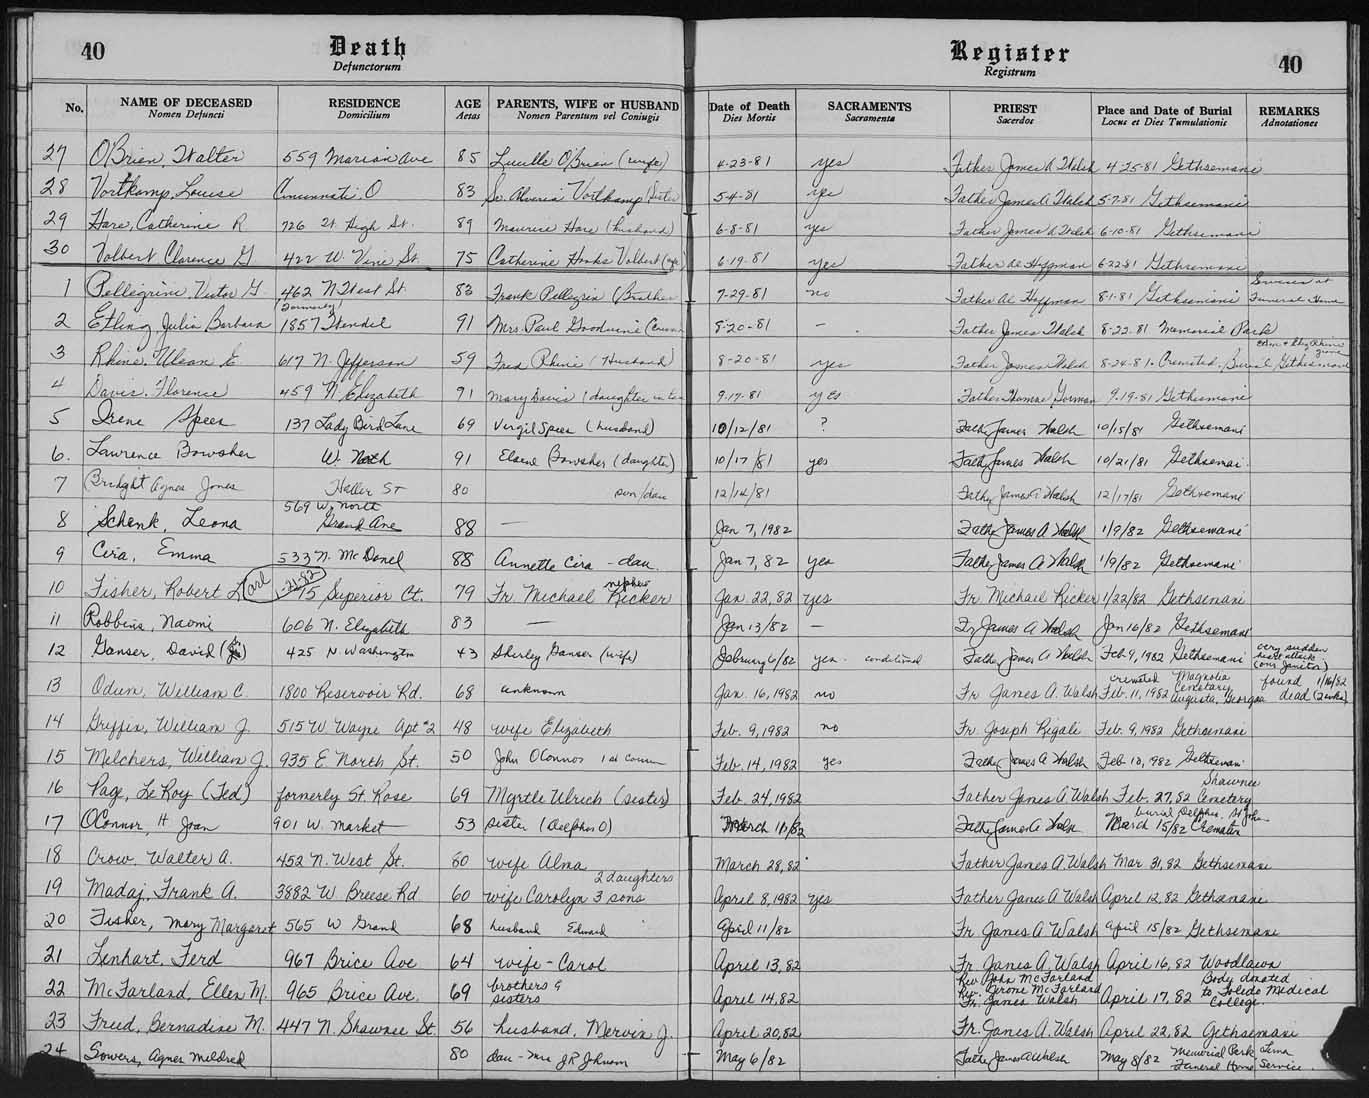 40 Death Register 40
Defunctorum Registrum
No. NAME OF DECEASED RESIDENCE AGE PARENTS, WIFE or HUSBAND Date of Death SACRAMENTS PRIEST Place and Date of Burial REMARKS
Nomen Defuncti Domicilium Aetas Nomen Parentum vel Coniugis Dies Mortis Sacramenta Sacerdos Locus et Dies Tumulationis Adnotationes
27 O'Brien, Walter 559 Marian Ave 85 Lucille O'Brien (wife) 4-23-81 yes Father James A Walsh 4-25-81 Gethsemani
28 Vortkamp, Louise Cincinnati, O 83 Sr. Alveria Vortkamp (Sister 5-4-81 yes Father James A Walsh 5-7-81 Gethsemani
29 Hare, Catherine R 726 W. High St. 89 Maurice Hare (husband) 6-8-81 yes Father James A Walsh 6-10-81 Gethsemani
30 Volbert Clarence G. 422 W. Vine St. 75 Catherine Hooks Volbert (wife) 6-19-81 yes Father Al Hoffman 6-22-81 Gethsemani
Service at
1 Pellegrini, Victor G. 462 N West St 83 Frank Pellegrin (Brother 7-29-81 no Father Al Hoffman 8-1-81 Gethsemani Funeral Home
(Formerly)
2 Etling, Julia Barbara 1857 Wendel 91 Mrs. Paul Goodwine (Cousin 8-20-81 - Father James Walsh 8-22-81 Memorial Park
3 Rhine, E. 617 N. Jefferson 59 Fred Rhine (Husband) 8-20-81 yes Father James Walsh 8-24-81. Cremated. Burial Gethsemani
4 Davis, Florence 459 N. Elizabeth 91 Mary Davis (daughter in law 9-17-81 yes Father Thomas Gorman 9-19-81 Gethsemani
5 Irene Speer 137 Lady Bird Lane 69 Virgil Speer (husband) 10/12/81 ? Father James Walsh 10/15/81 Gethsemani
6. Lawrence Bowsher W. North 91 Elaine Bowsher (daughter) 10/17/81 yes Father James Walsh 10/21/81 Gethsemai.
7 Bridght Agnes Jones Heller St 80 son/dau 12/14/81 Father James A Walsh 12/17/81 Gethsemani
569 W. North
8 Schenk, Leona Grand Ave 88 — Jan 7, 1982 Father James A Walsh 1/9/82 Gethsemani
9 Cira, Emma 533 N. McDonel 88 Annette Cira - dau. Jan 7, 82 yes Father James A Walsh 1/9/82 Gethsemani
Earl 1-21-82 nephew
10 Fisher, Robert 715 Superior Ct. 79 Fr. Michael Ricker Jan. 22, 82 yes Fr. Michael Ricker 1/22/82 Gethsemani
11 Robbins, Naomi 606 N. Elizabeth 83 — Jan 13/82 — Fr James A Walsh Jan 16/82 Gethsemani
very sudden
heart attack
12 Ganser, David (Jr) 425 N. Washington 43 Shirley Ganser (wife) February 6/82 yes - conditional Father James A Walsh Feb 9, 1982 Gethsemani (our Janitor)
cremated Magnolia
Cemetary found 1/16/82
13 Odum, William C. 1800 Reservoir Rd. 68 unknown Jan. 16, 1982 no Fr James A. Walsh Feb. 11, 1982 Augusta, Georgia dead (2 weeks)
14 Griffin, William J. 515 W Wayne Apt #2 48 wife Elizabeth Feb. 9, 1982 no Fr. Joseph Rigali Feb. 9, 1982 Gethsemani
15 Melchers, William J. 935 E North St. 50 John OConnor 1st cousin Feb. 14, 1982 yes Father James A Walsh Feb 18, 1982 Gethsemani
Shawnee
16 Page, LeRoy (Ted) formerly St. Rose 69 Myrtle Ulrich (sister) Feb. 24, 1982 Father James A. Walsh Feb. 27, 82 Cemetery
burial Delphos, St John
17 OConnor, H Joan 901 W. Market 53 sister (Delphos O) March 11/82 Father James A Walsh March 15/82 Cremation
18 Crow, Walter A. 452 N. West St. 60 wife Alma March 28, 82 Father James A. Walsh Mar. 31, 82 Gethsemani
2 daughters
19 Madaj, Frank A. 3882 W Breese Rd 60 wife Carolyn 3 sons April 8, 1982 yes Father James A. Walsh April 12, 82 Gethsemani
20 Fisher, Mary Margaret 565 W Grand 68 husband Edward April 11/82 Fr. James A. Walsh April 15/82 Gethsemani
21 Lenhart, Ferd 967 Brice Ave 64 wife - Carol April 13, 82 Fr James A. Walsh April 16, 82 Woodlawn
brothers & Rev John McFarland Body donated
Rev. Jerome McFarland to Toledo Medical
22 McFarland, Ellen M. 965 Brice Ave. 69 sisters April 14, 82 Fr. James Walsh April 17, 82 College.
23 Freed, Bernadine M. 447 N. Shawnee St. 56 husband, Mervin J. April 20, 82 Fr. James A. Walsh April 22, 82 Gethsemani
Memorial Park Lima
24 Sowers, Agnes Mildred 80 dau - Mrs J.R Johnson May 6/82 Father James A Walsh May 8/82 Funeral Home Service.